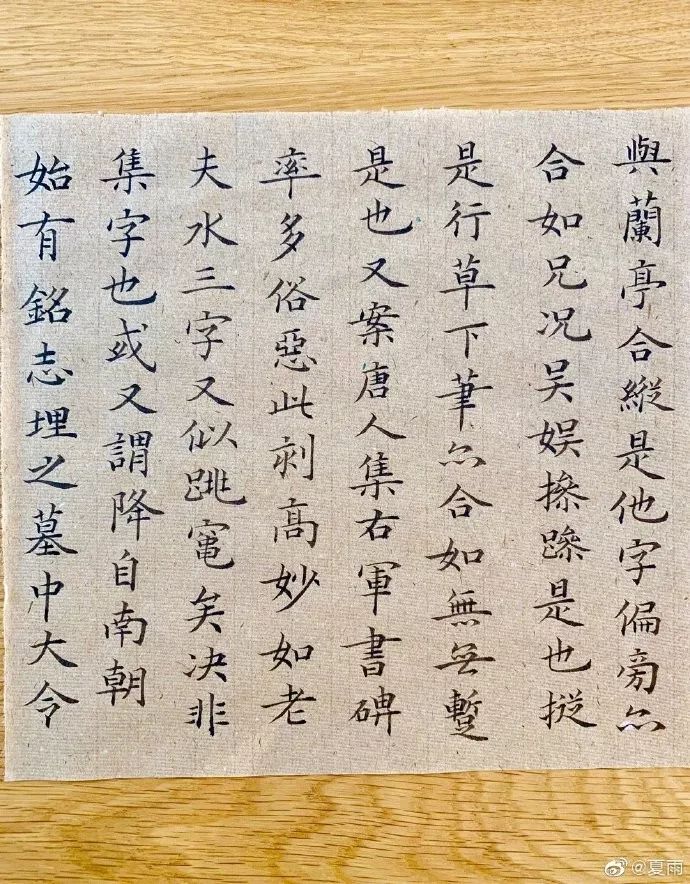 與蘭亭合縱是他字偏旁亦
合如兄况吴娱操躁是也縱
是行草下筆亦合如無无蹔
是也又案唐人集右軍書碑
率多俗惡此刻髙妙如老
夫水三字又似跳竈矣决非
集字也或又謂降自南朝
始有銘志埋之墓中大令
@夏雨